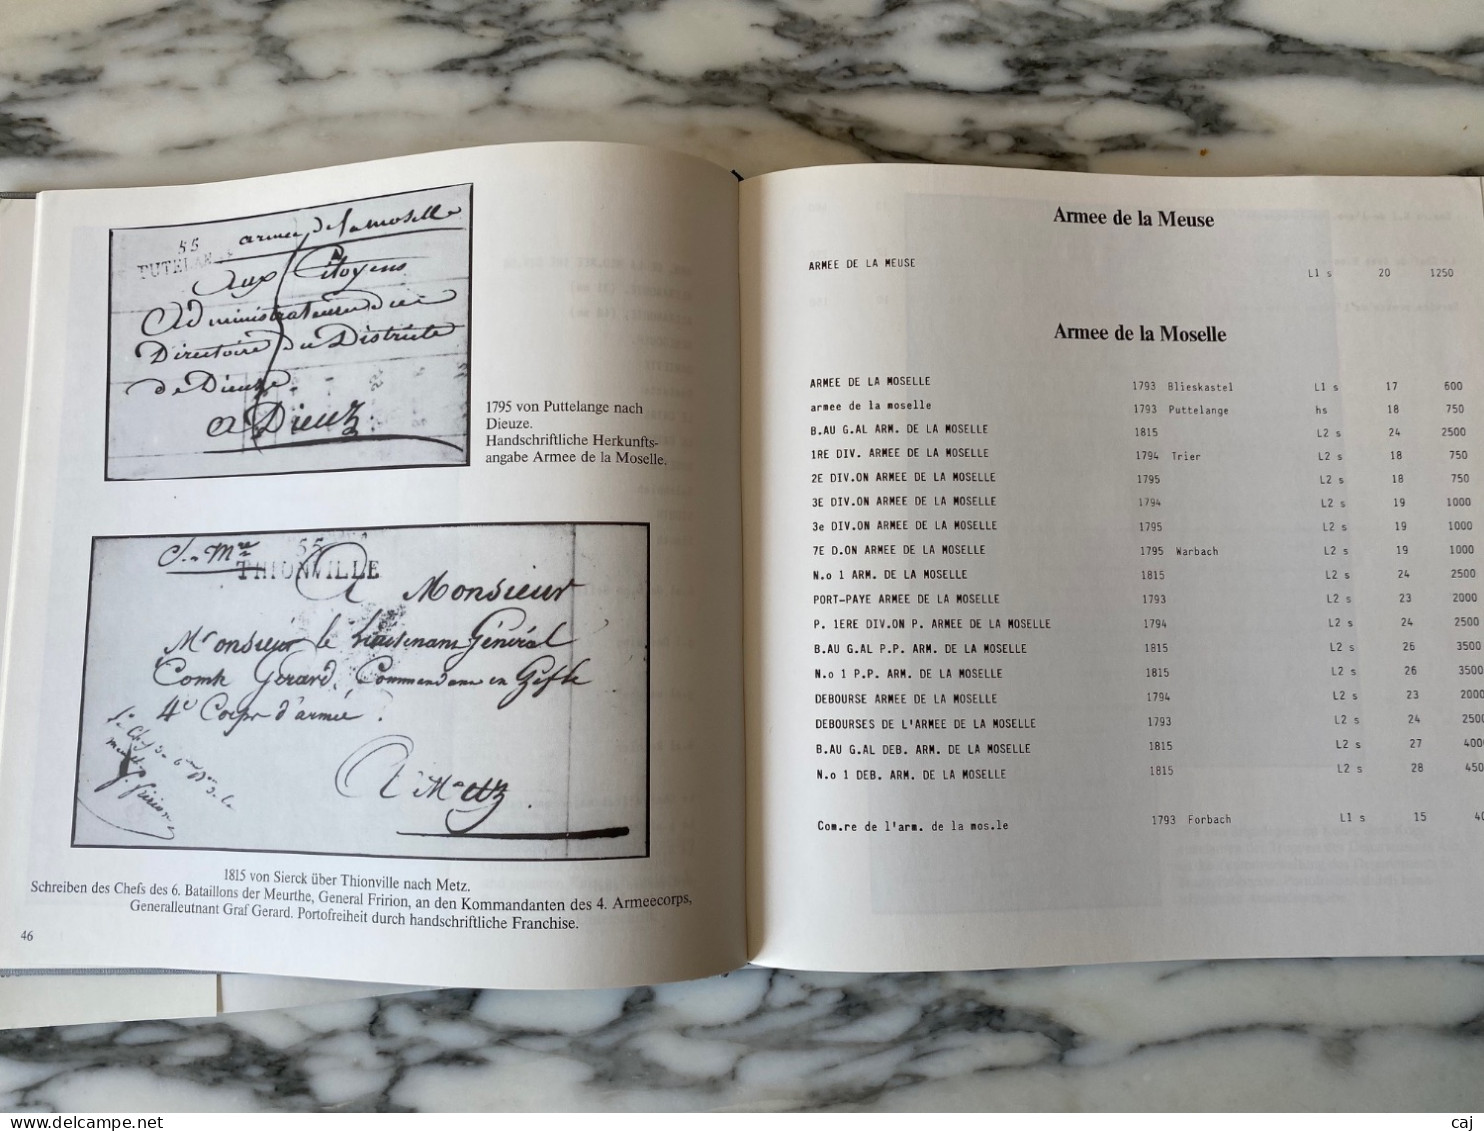 55
PUTELAN
armee de la moselle
Aux Citoyens
Administrateurs du
Directoire du Districte
de Dieuze
a Dieuz.
1795 von Puttelange nach
Dieuze.
Handschriftliche Herkunfts-
angabe Armee de la Moselle.
S. Mre
55
THIONVILLE
A Monsieur
Monsieur le Lieutenant Général
Comte Gerard, Commandant en Chef le
4e Corps d'armée.
A Metz.
1815 von Sierck über Thionville nach Metz.
Schreiben des Chefs des 6. Bataillons der Meurthe, General Fririon, an den Kommandanten des 4. Armeecorps,
Generalleutnant Graf Gerard. Portofreiheit durch handschriftliche Franchise.
46
Armee de la Meuse
ARMEE DE LA MEUSE L1 s 20 1250
Armee de la Moselle
ARMEE DE LA MOSELLE 1793 Blieskastel L1 s 17 600
armee de la moselle 1793 Puttelange hs 18 750
B.AU G.AL ARM. DE LA MOSELLE 1815 L2 s 24 2500
1RE DIV. ARMEE DE LA MOSELLE 1794 Trier L2 s 18 750
2E DIV.ON ARMEE DE LA MOSELLE 1795 L2 s 18 750
3E DIV.ON ARMEE DE LA MOSELLE 1794 L2 s 19 1000
3e DIV.ON ARMEE DE LA MOSELLE 1795 L2 s 19 1000
7E D.ON ARMEE DE LA MOSELLE 1795 Warbach L2 s 19 1000
N.o 1 ARM. DE LA MOSELLE 1815 L2 s 24 2500
PORT-PAYE ARMEE DE LA MOSELLE 1793 L2 s 23 2000
P. 1ERE DIV.ON P. ARMEE DE LA MOSELLE 1794 L2 s 24 2500
B.AU G.AL P.P. ARM. DE LA MOSELLE 1815 L2 s 26 3500
N.o 1 P.P. ARM. DE LA MOSELLE 1815 L2 s 26 3500
DEBOURSE ARMEE DE LA MOSELLE 1794 L2 s 23 2000
DEBOURSES DE L'ARMEE DE LA MOSELLE 1793 L2 s 24 2500
B.AU G.AL DEB. ARM. DE LA MOSELLE 1815 L2 s 27 4000
N.o 1 DEB. ARM. DE LA MOSELLE 1815 L2 s 28 450
Com.re de l'arm. de la mos.le 1793 Forbach L1 s 15 40
caj